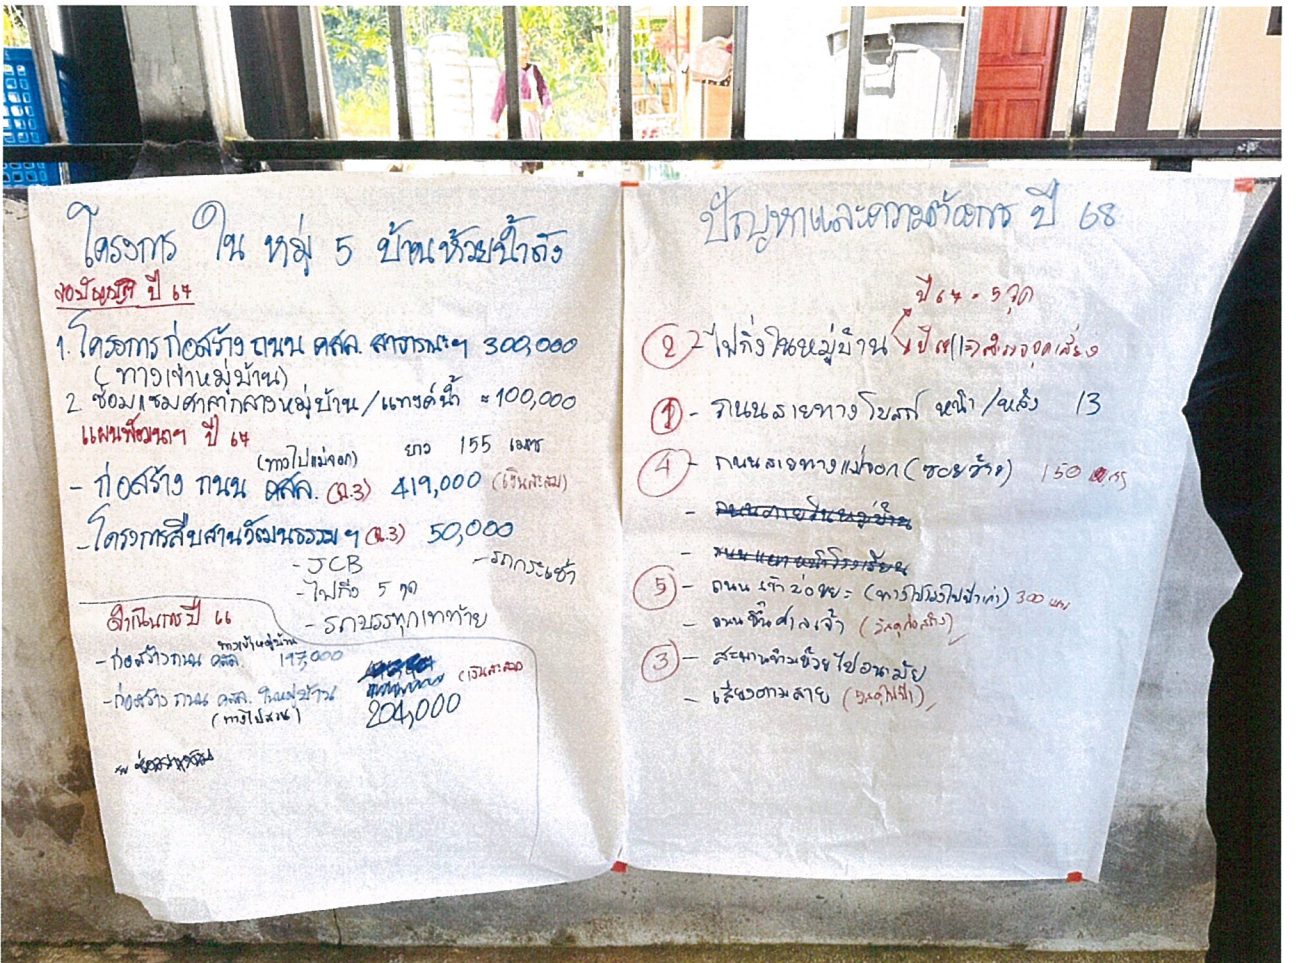 โครงการ ใน หมู่ 5 บ้านห้วยน้ำดัง
ข้อบัญญัติ ปี 67
1. โครงการก่อสร้าง ถนน คสล. สาธารณะฯ 300,000
(ทางเข้าหมู่บ้าน)
2. ซ่อมแซมศาลากลางหมู่บ้าน/แทงค์น้ำ = 100,000
แผนพัฒนาฯ ปี 67
(ทางไปแม่จอก) ยาว 155 เมตร
- ก่อสร้าง ถนน คสล. (ฉ.3) 419,000 (เงินสะสม)
- โครงการสืบสานวัฒนธรรมฯ (ฉ.3) 50,000
- JCB - รถกระเช้า
- ไฟกิ่ง 5 จุด
- รถบรรทุกเทท้าย
ดำเนินการปี 66
ทางเข้าหมู่บ้าน
- ก่อสร้างถนน คสล. 197,000
- ก่อสร้าง ถนน คสล. ในหมู่บ้าน (เงินสะสม)
(ทางไปสวน) 204,000
ปัญหาและความต้องการ ปี 68
ปี 67 = 5 จุด
② - ไฟกิ่งในหมู่บ้าน ปี 68 สำรวจจุดเสี่ยง
① - ถนนสายทางโบสถ์ หน้า/หลัง 13
④ - ถนนสายทางแม่จอก (ซอยซ้าย) 150 เมตร
- ถนนภายในหมู่บ้าน
⑤ - ถนนเข้าบ่อขยะ 300 เมตร
- ถนนขึ้นศาลเจ้า (วัสดุก่อสร้าง)
③ - สะพานข้ามห้วยไปอนามัย
- เสียงตามสาย (วัสดุไฟฟ้า)